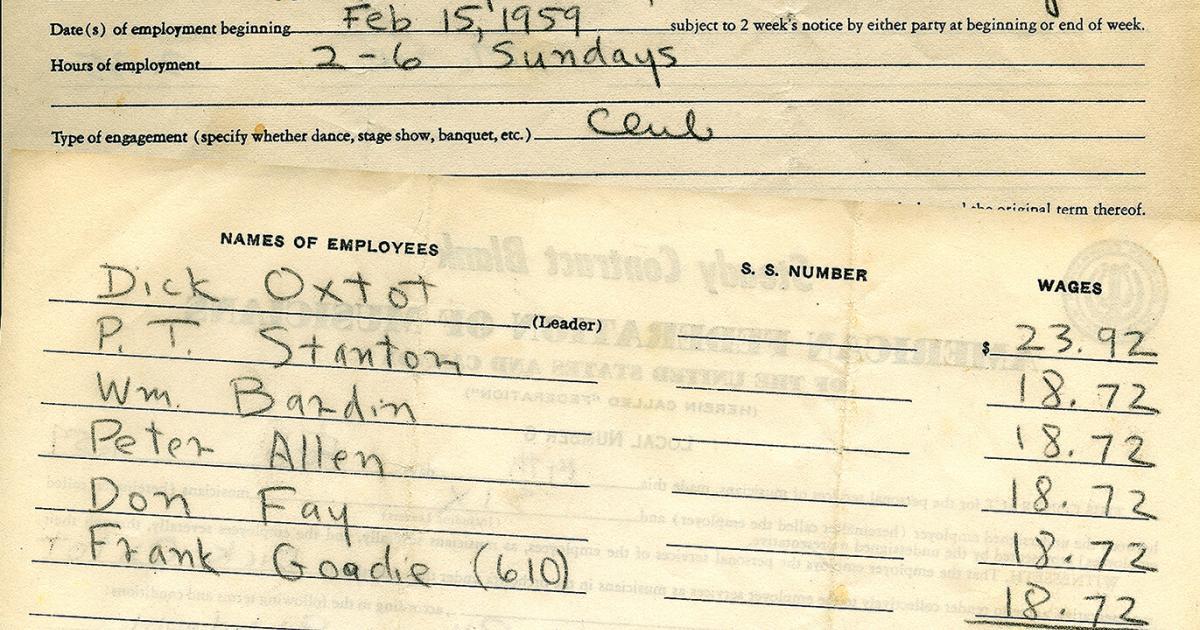 Date(s) of employment beginning Feb 15, 1959 subject to 2 week's notice by either party at beginning or end of week.
Hours of employment 2-6 Sundays
Type of engagement (specify whether dance, stage show, banquet, etc.) Club
original term thereof.
NAMES OF EMPLOYEES S. S. NUMBER WAGES
Dick Oxtot (Leader) $ 23.92
P. T. Stanton 18.72
Wm. Bardin 18.72
Peter Allen 18.72
Don Fay 18.72
Frank Goadie (610) 18.72